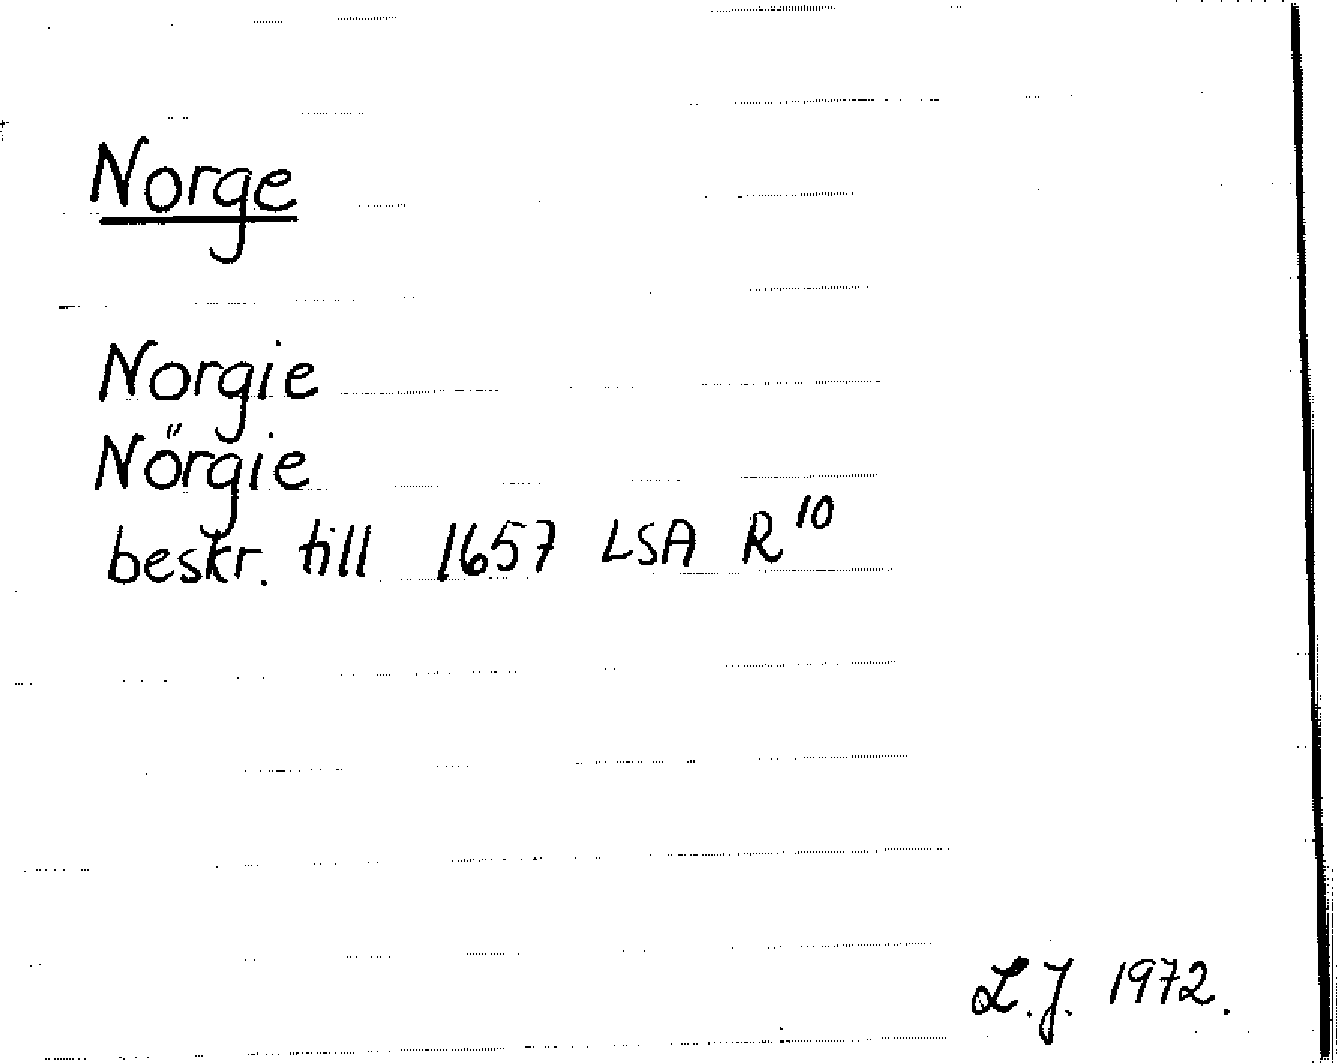 Norge
Norgie
Nörgie
beskr. till 1657 LSA R¹⁰
L.J. 1972.